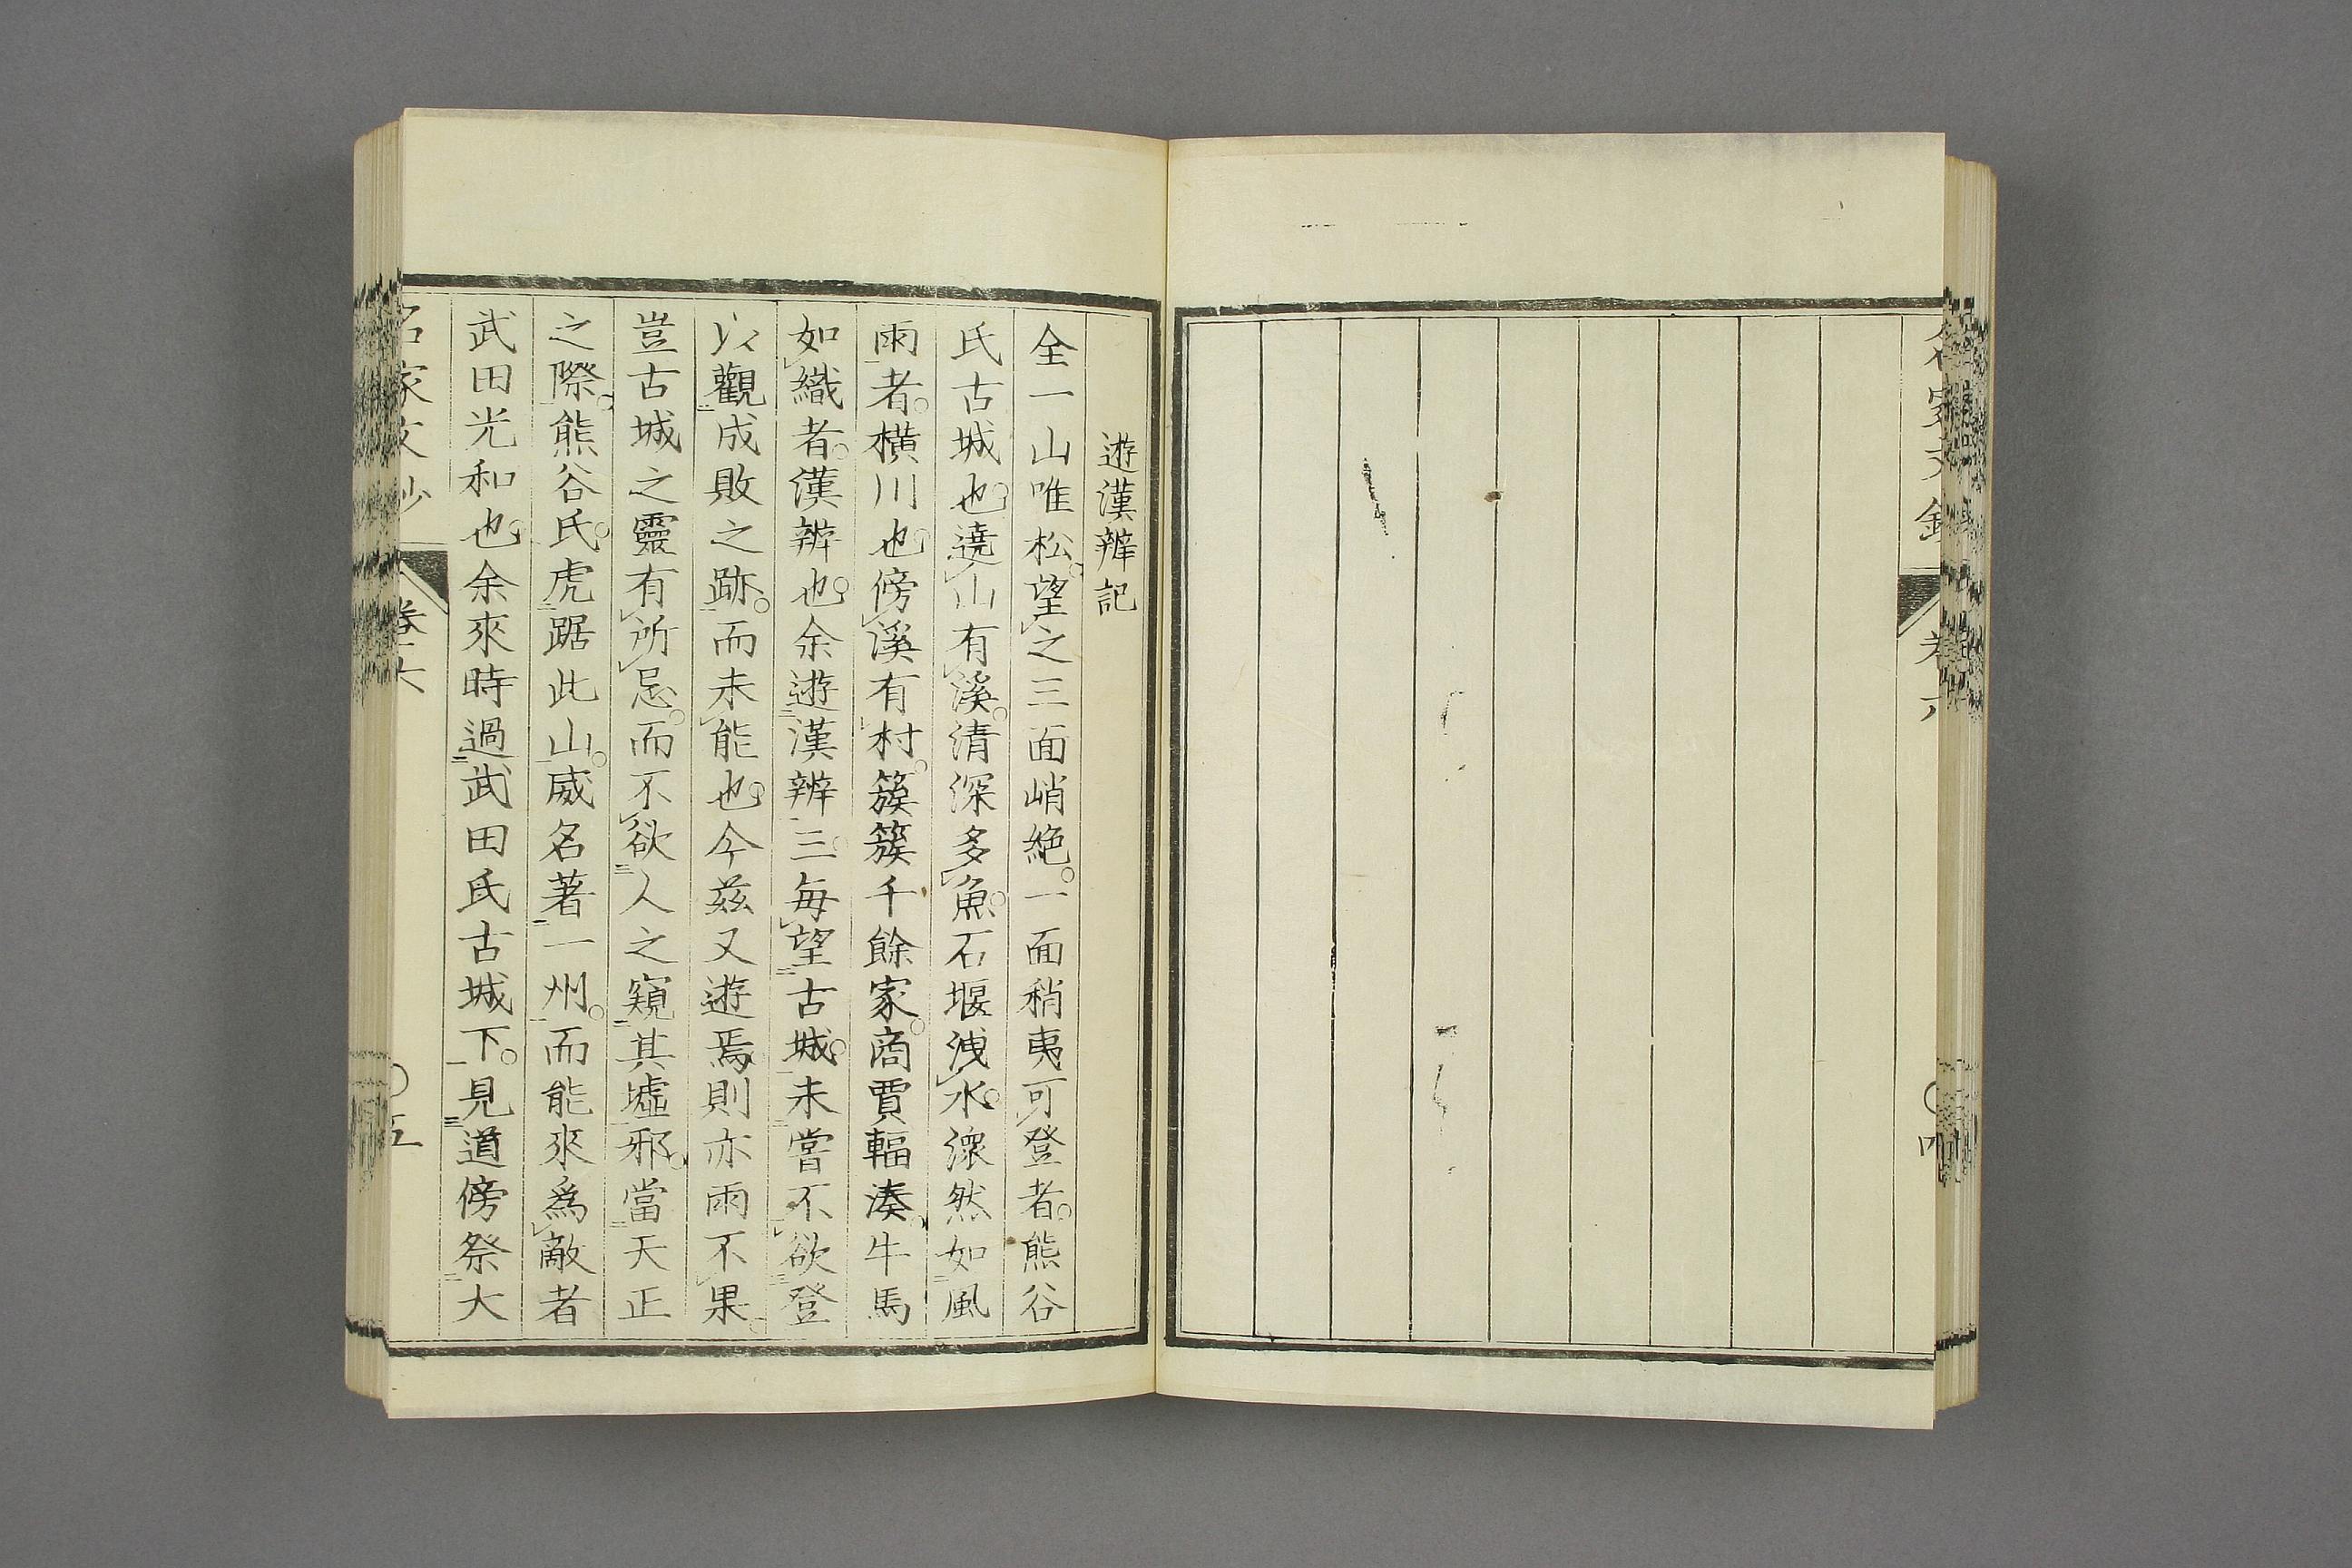 遊漢辨記
全一山唯松望之三面峭絶一面稍夷可登者熊谷
氏古城也遶山有溪清深多魚石堰洩水濴然如風
雨者橫川也傍溪有村簇簇千餘家商賈輻湊牛馬
如織者漢辨也余遊漢辨三毎望古城未嘗不欲登
以觀成敗之跡而未能也今茲又遊焉則亦雨不果
豈古城之靈有所忌而不欲人之窺其墟邪當天正
之際熊谷氏虎踞此山威名著一州而能來爲敵者
武田光和也余來時過武田氏古城下見道傍祭大
名家文抄 卷六 〇五